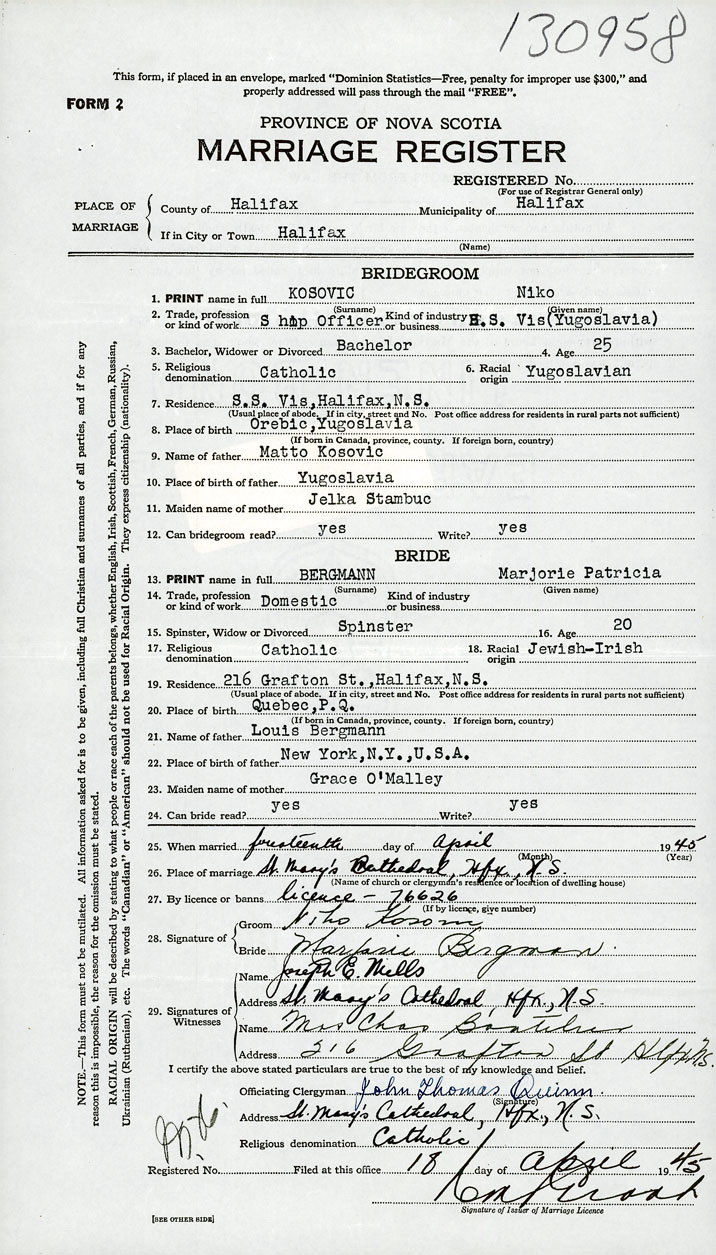 130958
This form, if placed in an envelope, marked "Dominion Statistics—Free, penalty for improper use $300," and
properly addressed will pass through the mail "FREE".
FORM 2
PROVINCE OF NOVA SCOTIA
MARRIAGE REGISTER
REGISTERED No.
(For use of Registrar General only)
PLACE OF MARRIAGE
County of Halifax Municipality of Halifax
If in City or Town Halifax
(Name)
BRIDEGROOM
1. PRINT name in full KOSOVIC Niko
(Surname) (Given name)
2. Trade, profession or kind of work Ship Officer Kind of industry or business S.S. Vis(Yugoslavia)
3. Bachelor, Widower or Divorced Bachelor 4. Age 25
5. Religious denomination Catholic 6. Racial origin Yugoslavian
7. Residence S.S. Vis,Halifax,N.S.
(Usual place of abode. If in city, street and No. Post office address for residents in rural parts not sufficient)
8. Place of birth Orebic,Yugoslavia
(If born in Canada, province, county. If foreign born, country)
9. Name of father Matto Kosovic
10. Place of birth of father Yugoslavia
11. Maiden name of mother Jelka Stambuc
12. Can bridegroom read? yes Write? yes
BRIDE
13. PRINT name in full BERGMANN Marjorie Patricia
(Surname) (Given name)
14. Trade, profession or kind of work Domestic Kind of industry or business
15. Spinster, Widow or Divorced Spinster 16. Age 20
17. Religious denomination Catholic 18. Racial origin Jewish-Irish
19. Residence 216 Grafton St.,Halifax,N.S.
(Usual place of abode. If in city, street and No. Post office address for residents in rural parts not sufficient)
20. Place of birth Quebec,P.Q.
(If born in Canada, province, county. If foreign born, country)
21. Name of father Louis Bergmann
22. Place of birth of father New York,N.Y.,U.S.A.
23. Maiden name of mother Grace O'Malley
24. Can bride read? yes Write? yes
25. When married fourteenth day of April 1945
(Month) (Year)
26. Place of marriage St. Mary's Cathedral, Hfx., N.S.
(Name of church or clergyman's residence or location of dwelling house)
27. By licence or banns license - 76626
(If by licence, give number)
28. Signature of
Groom Niko
Bride Marjorie Bergman
29. Signatures of Witnesses
Name Joseph E. Mills
Address St. Mary's Cathedral, Hfx., N.S.
Name Mrs Chas
Address 216 Grafton St Hfx N.S.
I certify the above stated particulars are true to the best of my knowledge and belief.
Officiating Clergyman John Thomas Quinn
(Signature)
Address St. Mary's Cathedral, Hfx., N.S.
Religious denomination Catholic
Registered No. Filed at this office 18 day of April 1945
Signature of Issuer of Marriage Licence
[SEE OTHER SIDE]
NOTE.—This form must not be mutilated. All information asked for is to be given, including full Christian and surnames of all parties, and if for any
reason this is impossible, the reason for the omission must be stated.
RACIAL ORIGIN will be described by stating to what people or race each of the parents belongs, whether English, Irish, Scottish, French, German, Russian,
Ukrainian (Ruthenian), etc. The words "Canadian" or "American" should not be used for Racial Origin. They express citizenship (nationality).